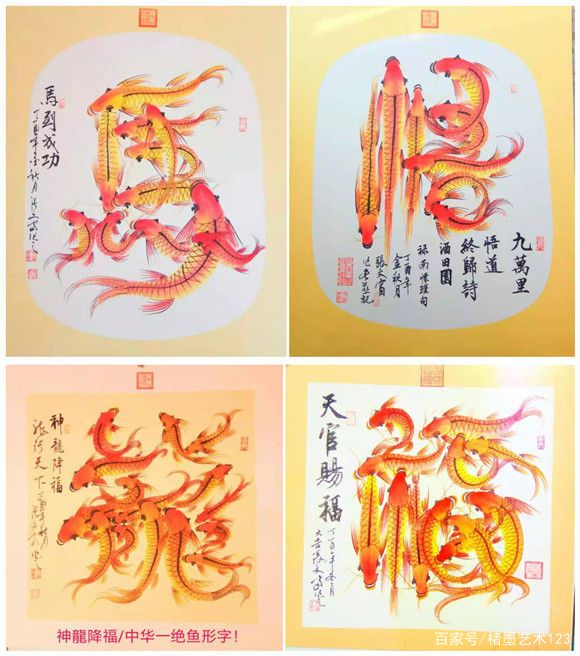 馬
馬到成功
丁酉年金秋月
悟
九萬里
悟道
終歸詩
酒田園
南懷瑾句
丁酉年
金秋月
張文富
龍
神龍降福
龍行天下
福
天官賜福
神龍降福/中华一绝鱼形字！
百家号/楮墨艺术123